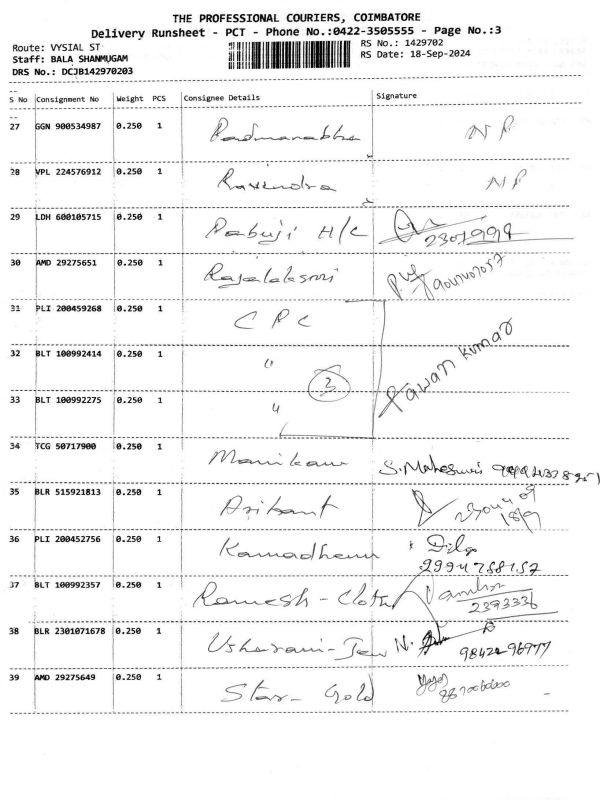 THE PROFESSIONAL COURIERS, COIMBATORE
Delivery Runsheet - PCT - Phone No.:0422-3505555 - Page No.:3
Route: VYSIAL ST RS No.: 1429702
Staff: BALA SHANMUGAM RS Date: 18-Sep-2024
DRS No.: DCJB142970203
S No Consignment No Weight PCS Consignee Details Signature
27 GGN 900534987 0.250 1 Padmanabha NP
28 VPL 224576912 0.250 1 Ravindra NP
29 LDH 600105715 0.250 1 Babuji H/C
30 AMD 29275651 0.250 1 Rajalaksmi
31 PLI 200459268 0.250 1 C P C
32 BLT 100992414 0.250 1 " 3 Pawan Kumar
33 BLT 100992275 0.250 1 "
34 TCG 50717900 0.250 1 Manikam S. Maheswri
35 BLR 515921813 0.250 1 Arihant
18/9
36 PLI 200452756 0.250 1 Kamadhenu
37 BLT 100992357 0.250 1 Ramesh - Cloth
2393336
38 BLR 2301071678 0.250 1 Usharani - Jew N. 98422 96977
39 AMD 29275649 0.250 1 Star - Gold